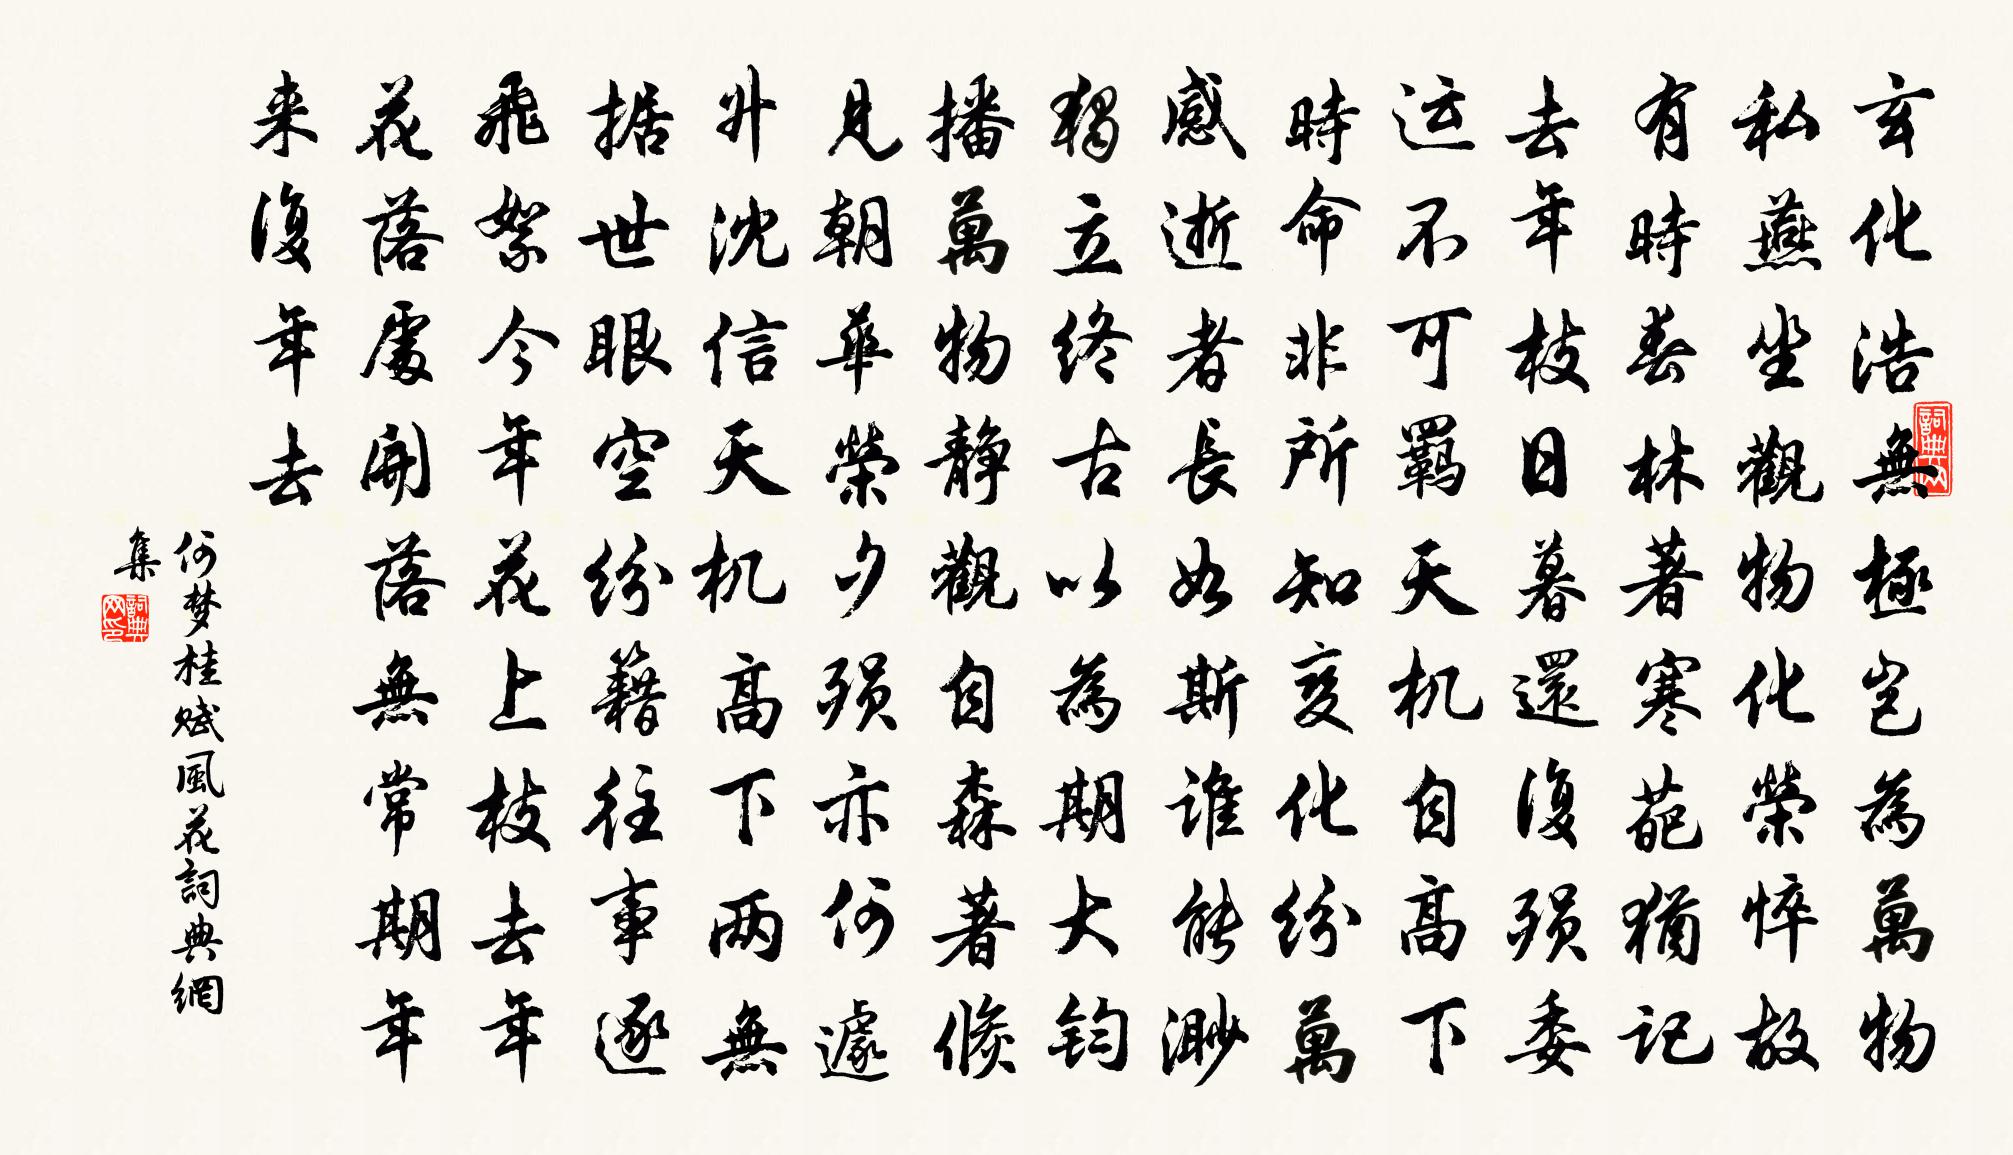 玄化浩無極豈為萬物
私燕坐觀物化榮悴故
有時春林著寒葩猶記
去年枝日暮還復殞委
运不可羁天机自高下
時命非所知变化纷萬
感逝者長如斯谁能渺
獨立终古以為期大钧
播萬物静觀自森著倏
見朝華榮夕殒亦何遽
升沈信天机高下两無
据世眼空纷籍往事逐
飛絮今年花上枝去年
花落處開落無常期年
来復年去
何梦桂赋風花詞典網
集
詞典网
詞典网印